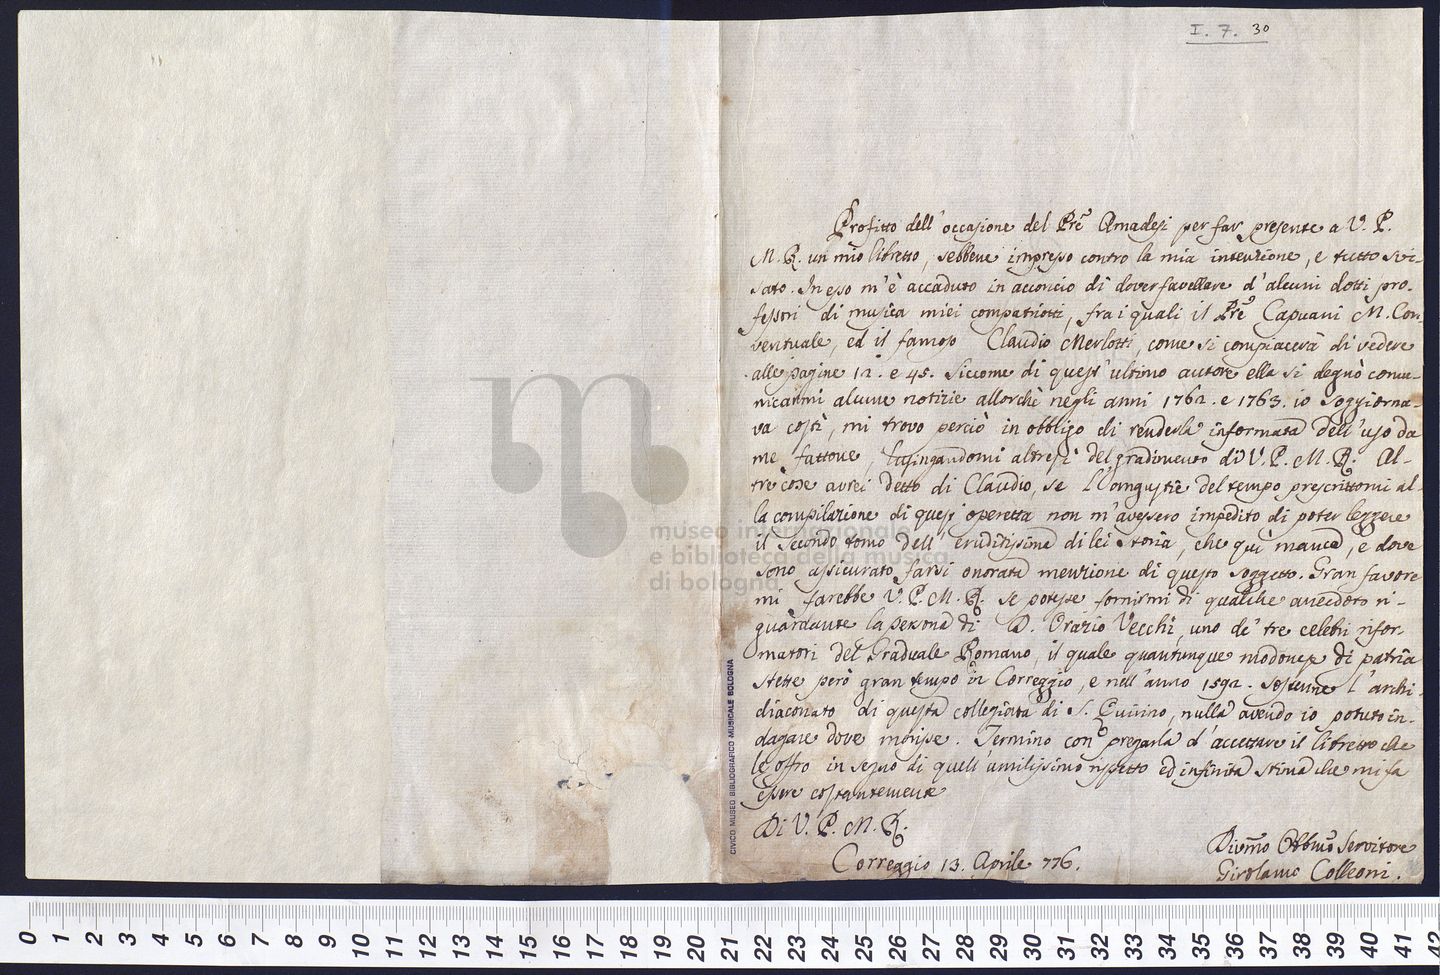 I. 7. 30
Profitto dell'occasione del Pre Amadesi per far presente a V. P.
M. R. un mio libretto, sebbene impresso contro la mia intenzione, e tutto svi-
sato. In esso m'è accaduto in acconcio di dover favellare d'alcuni dotti pro-
fessori di musica miei compatriotti, fra i quali il Pre Capuani M. Con-
ventuale, ed il famoso Claudio Merlotti, come si compiacerà di vedere
alle pagine 12. e 45. Siccome di quest'ultimo autore ella si degnò comu-
nicarmi alcune notizie allorchè negli anni 1762. e 1763. io soggiorna-
va costì, mi trovo perciò in obbligo di renderla informata dell'uso da
me fattone, lusingandomi altresì del gradimento di V. P. M. R. Al-
tre cose avrei detto di Claudio, se l'angustie del tempo prescrittomi al-
la compilazione di quest'operetta non m'avessero impedito di poter leggere
il secondo tomo dell'eruditissima di lei storia, che quì manca, e dove
sono assicurato farsi onorata menzione di questo soggetto. Gran favore
mi farebbe V. P. M. R. se potesse fornirmi di qualche anecdoto ri-
guardante la persona di D. Orazio Vecchi, uno de' tre celebri rifor-
matori del Graduale Romano, il quale quantunque modonese di patria
stette però gran tempo in Correggio, e nell'anno 1592. sostenne l'archi-
diaconato di questa collegiata di S. Quirino, nulla avendo io potuto in-
dagare dove morisse. Termino con pregarla d'accettare il libretto che
le offro in segno di quell'umilissimo rispetto ed infinita stima che mi fa
essere costantemente
Di V. P. M. R.
Correggio 13. Aprile 776.
Divmo Obbmo Servitore
Girolamo Colleoni.
CIVICO MUSEO BIBLIOGRAFICO MUSICALE BOLOGNA
museo internazionale
e biblioteca della musica
di bologna
0 1 2 3 4 5 6 7 8 9 10 11 12 13 14 15 16 17 18 19 20 21 22 23 24 25 26 27 28 29 30 31 32 33 34 35 36 37 38 39 40 41 42